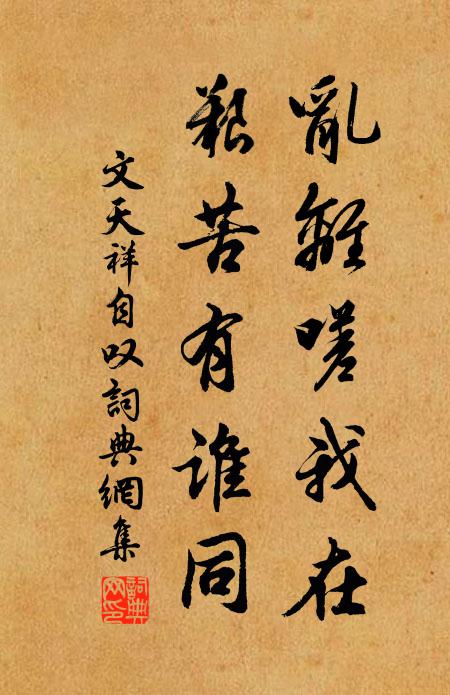 亂離嗟我在
艱苦有誰同
文天祥自叹詞典網集
詞典網印